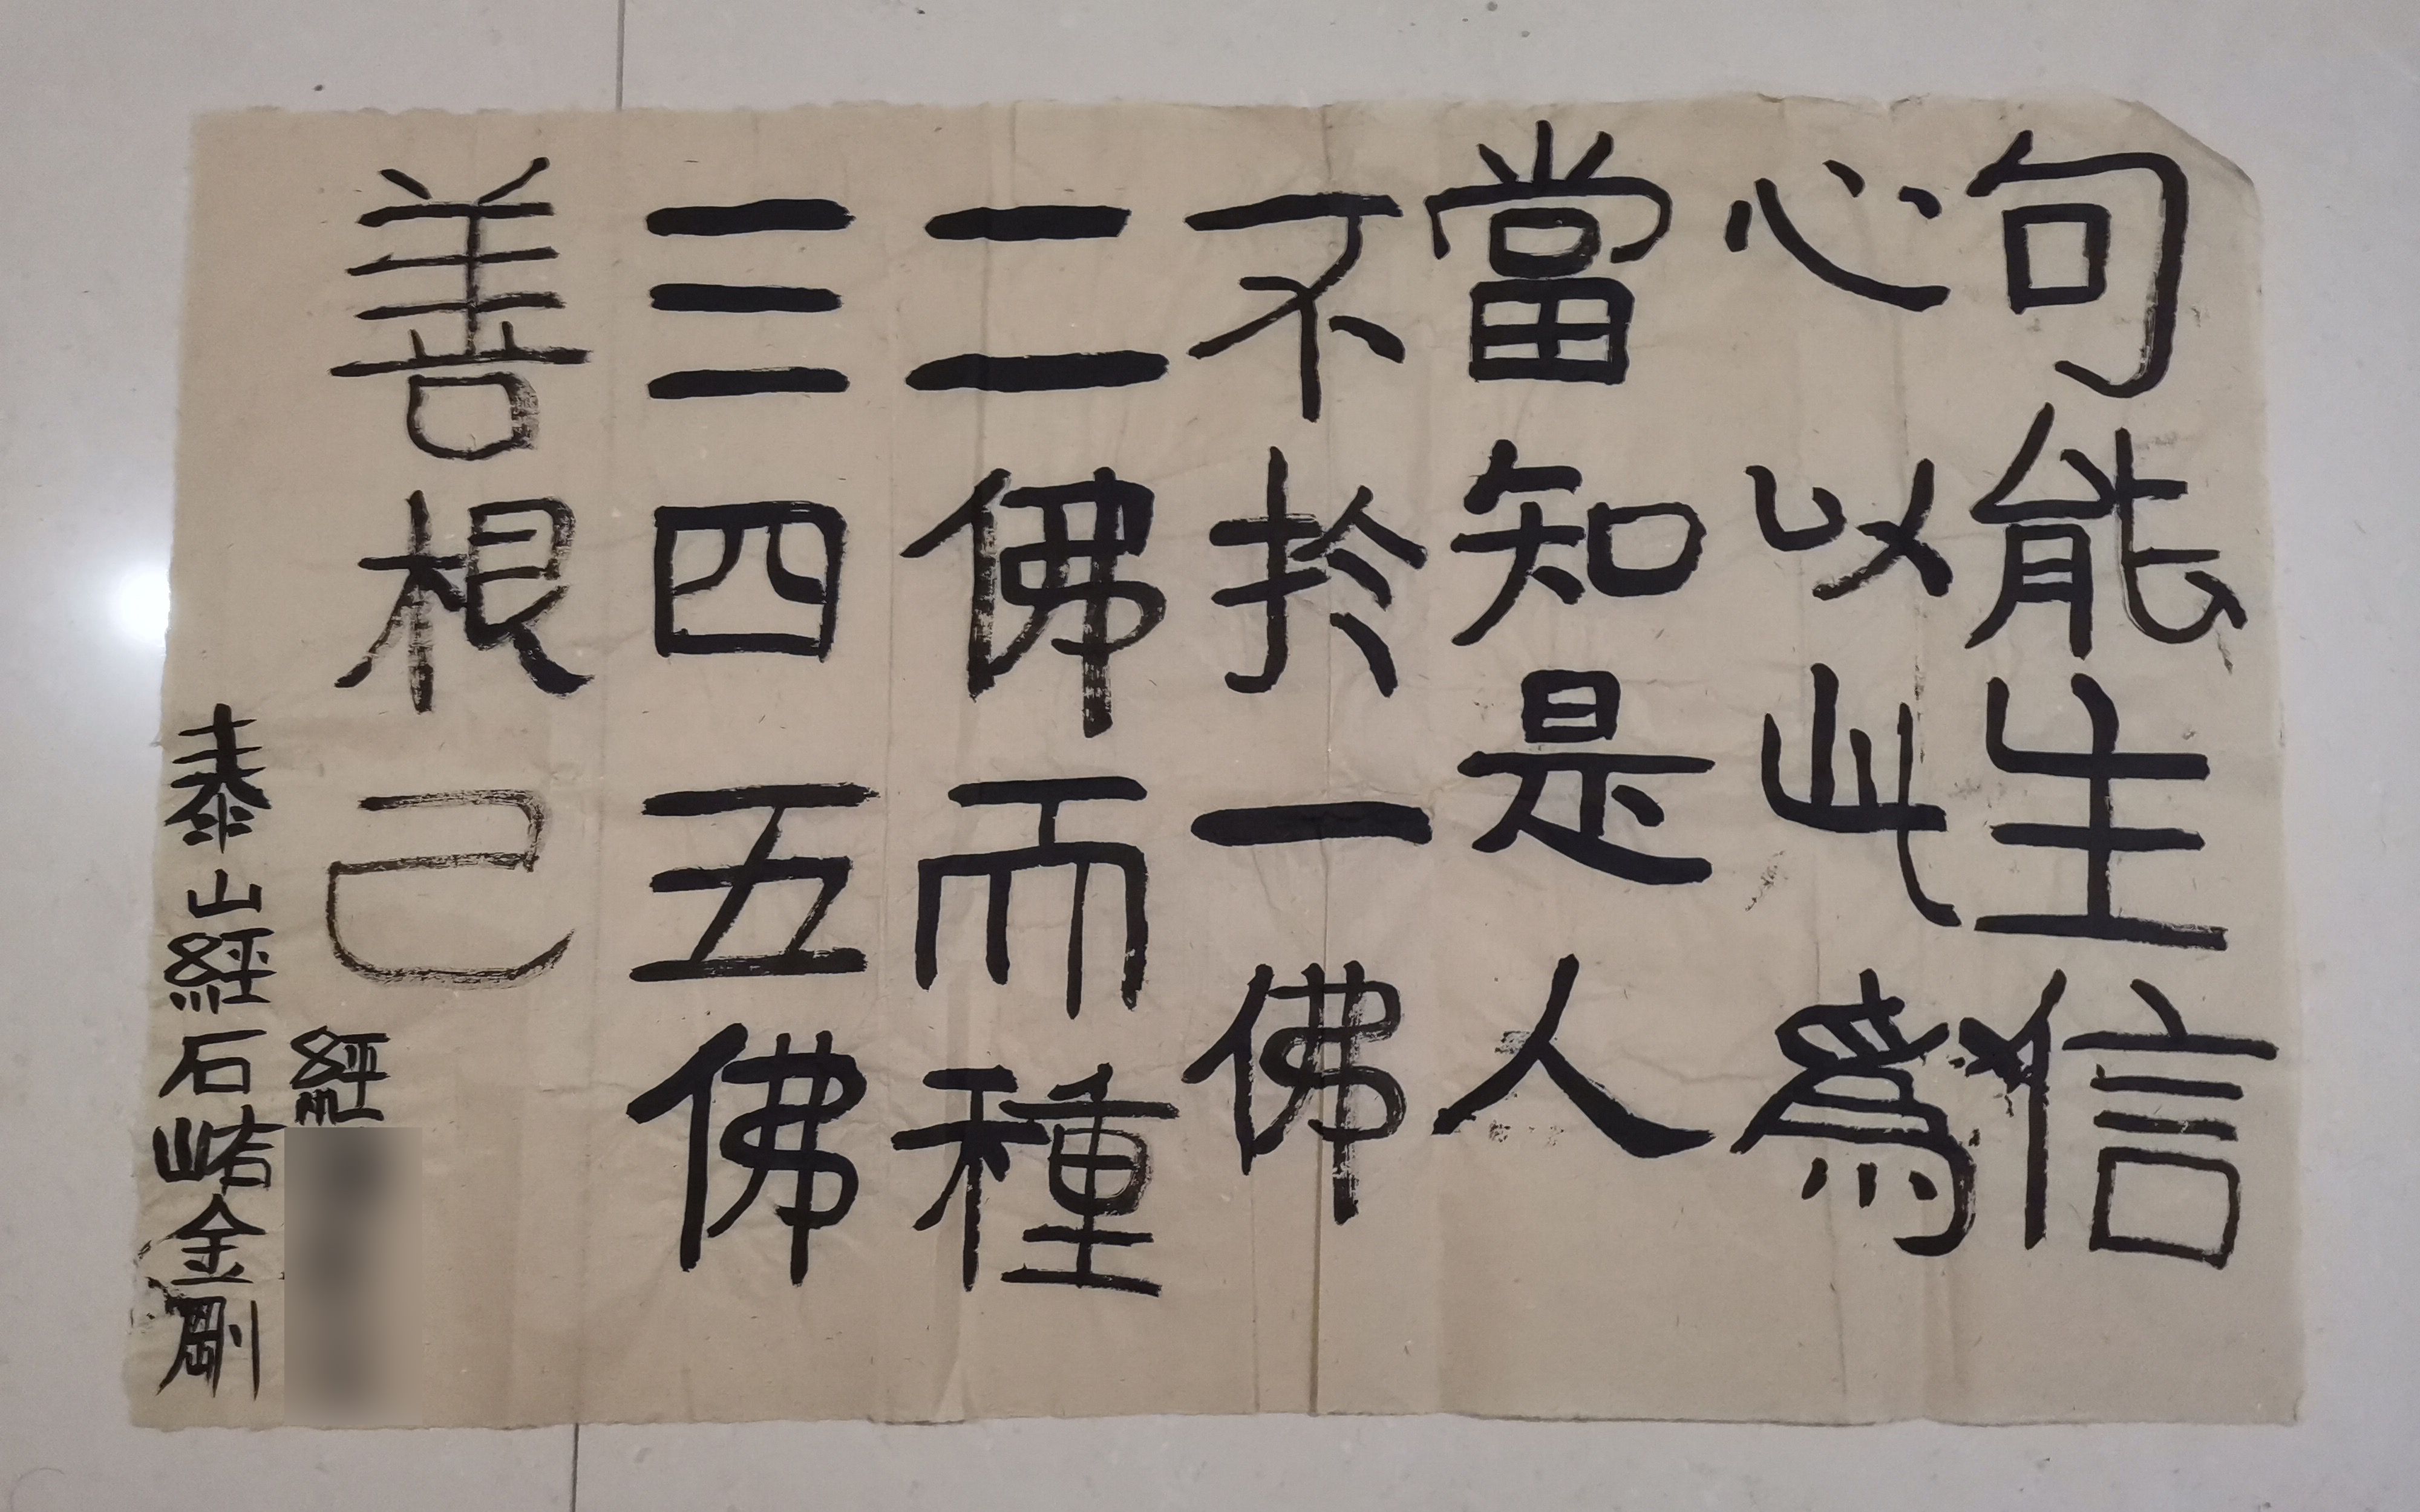 句能生信
心以此為
當知是人
不於一佛
二佛而種
三四五佛
善根已
泰山經石峪金剛
經